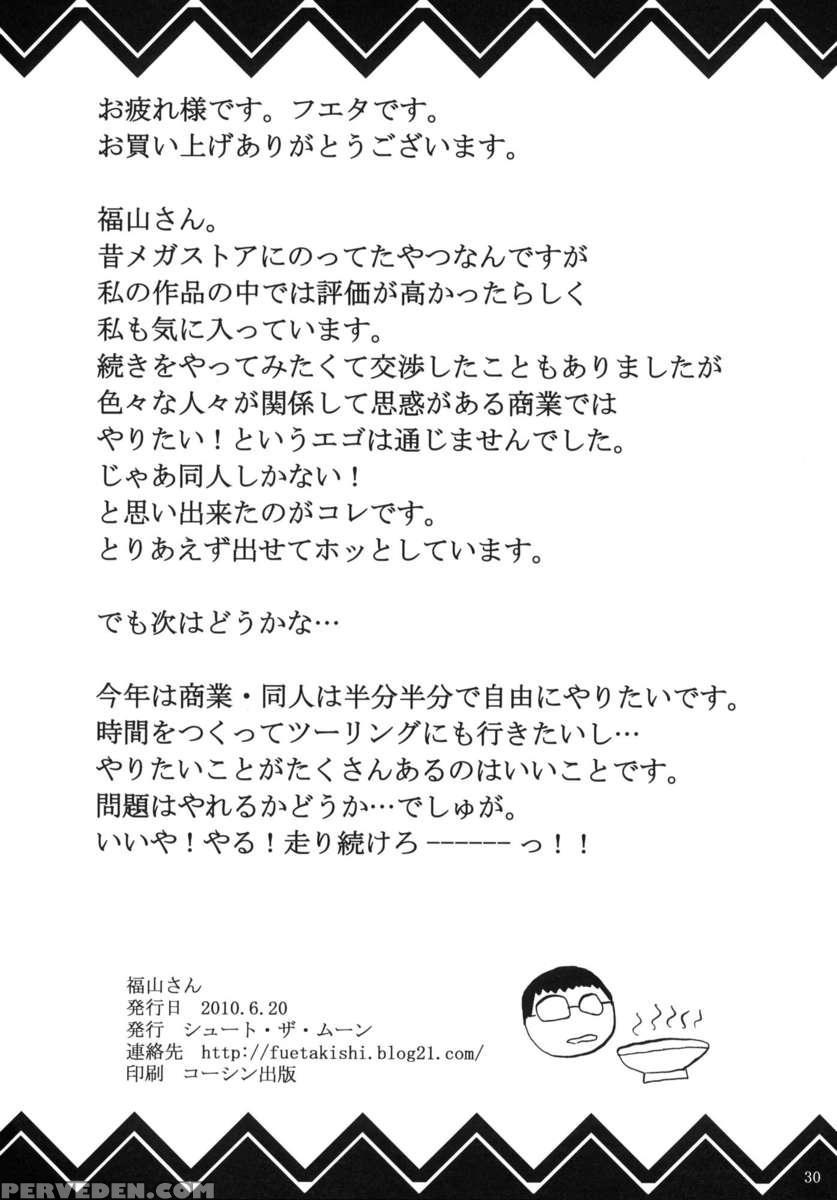 お疲れ様です。フエタです。
お買い上げありがとうございます。
福山さん。
昔メガストアにのってたやつなんですが
私の作品の中では評価が高かったらしく
私も気に入っています。
続きをやってみたくて交渉したこともありましたが
色々な人々が関係して思惑がある商業では
やりたい！というエゴは通じませんでした。
じゃあ同人しかない！
と思い出来たのがコレです。
とりあえず出せてホッとしています。
でも次はどうかな…
今年は商業・同人は半分半分で自由にやりたいです。
時間をつくってツーリングにも行きたいし…
やりたいことがたくさんあるのはいいことです。
問題はやれるかどうか…でしゅが。
いいや！やる！走り続けろ ------ っ！！
福山さん
発行日　2010.6.20
発行　シュート・ザ・ムーン
連絡先　http://fuetakishi.blog21.com/
印刷　コーシン出版
30
PERVEDEN.COM